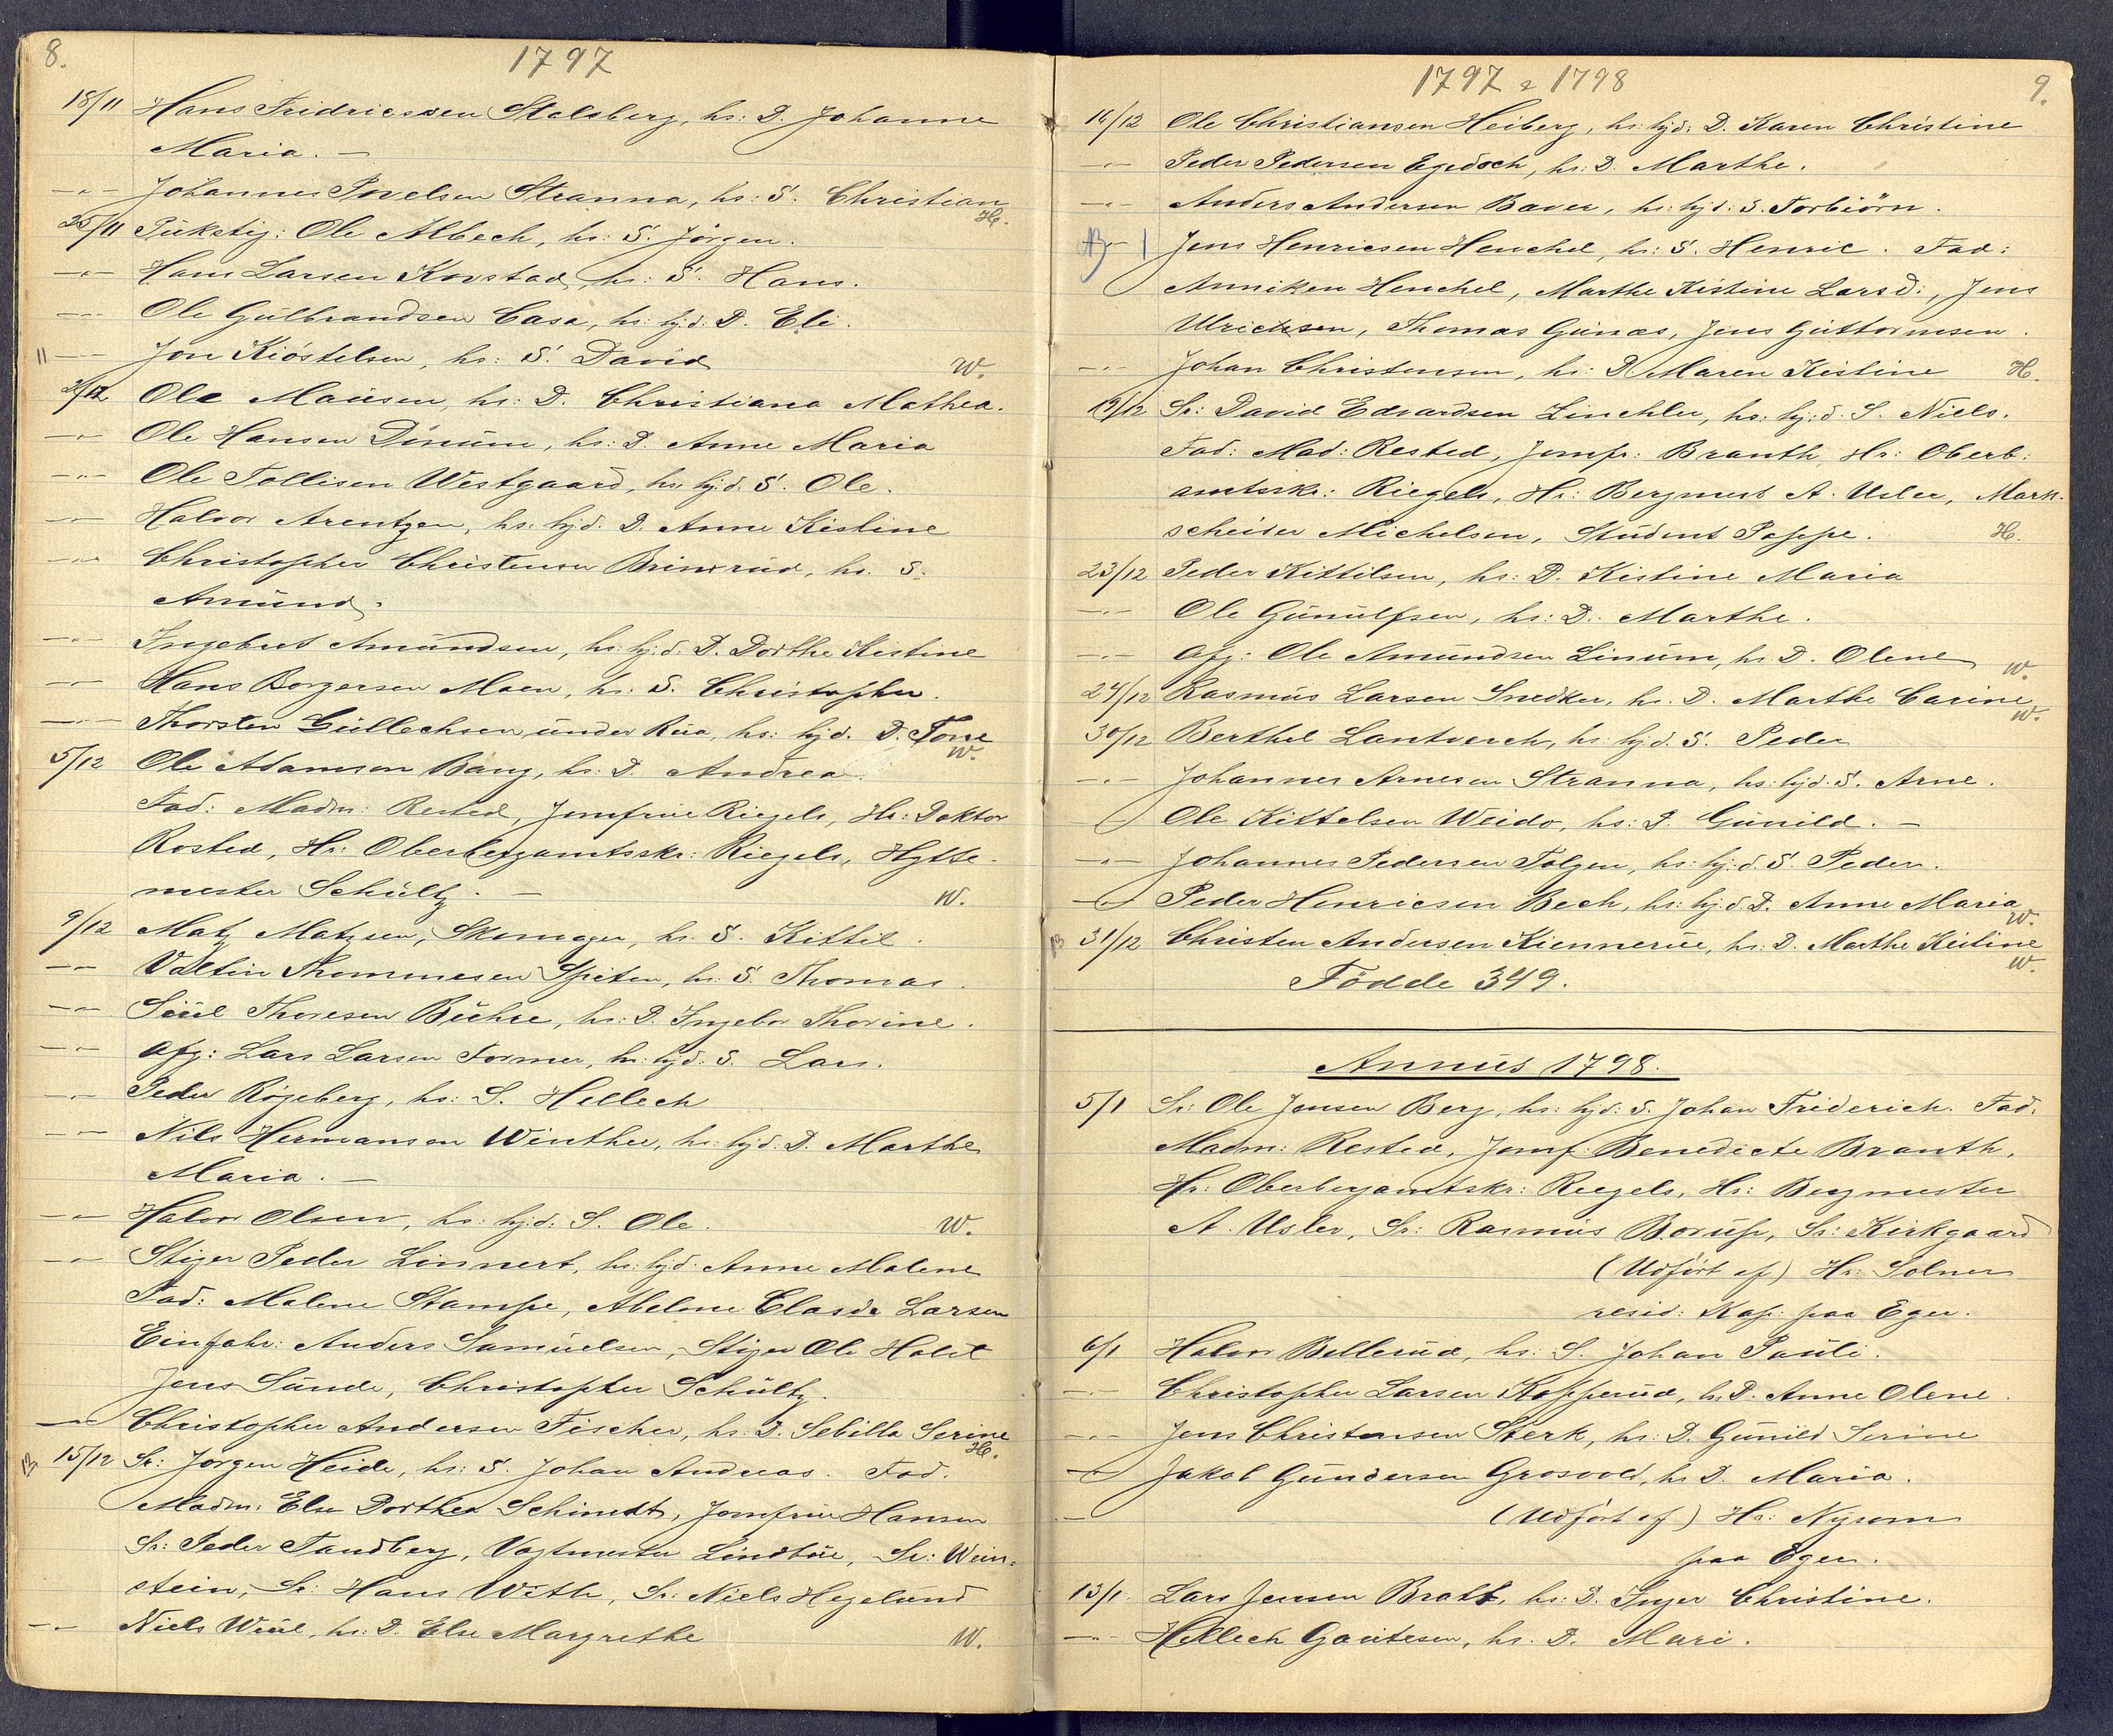 8.
1797
18/11 Hans Fridricssen Stalsberg, hs: D. Johanne
Maria. —
—"— Johannes Povelsen Stranna, hs: S. Christian
H.
25/11 Pükstig: Ole Albech, hs: S. Jörgen.
—"— Hans Larsen Korstad, hs: S. Hans.
—"— Ole Gülbrandsen Casa, hs: hj: d: D. Eli.
11 —"— Jon Kiöstelsen, hs: S. David W.
2/12 Ole Mausen, hs: D. Christiana Mathea.
—"— Ole Hansen Dinüm, hs: D. Anne Maria
—"— Ole Tollisen Westgaard, hs: hj: d. S. Ole.
—"— Halvor Arentzen, hs: hj: d. D. Anne Kistine
—"— Christopher Christensen Brinsrüd, hs. S.
Amünd.
—"— Ingebret Amündsen, hs: hj: d. D. Dorthe Kistine
—"— Hans Borgersen Moen, hs: S. Christopher.
—"— Thorsten Güllechsen ünder Rüa, hs: hj: d. D. Tone
W.
5/12 Ole Adamsen Bang, hs: D. Andrea.
Fad: Madm: Rested, Jomfrue Riegels, Hr: Doktor
Rosted, Hr: Oberbergamtsskr: Riegels, Hytte-
mester Schültz. — W.
9/12 Matz Matzsen, Skomager, hs. S. Kittil.
—"— Valtin Thommesen Spiten, hs: S. Thomas.
—"— Siül Thoresen Bühse, hs: D. Ingebor Thorine.
—"— Afg: Lars Larsen Former, hs: hj: d: S. Lars.
—"— Peder Röyeberg, hs: S. Hellech
—"— Nils Hermansen Winther, hs: hj: d: D. Marthe
Maria. —
—"— Halvor Olsen, hs: hj: d: S. Ole. W.
—"— Stiger Peder Linnert, hs: hj: d: Anne Malene
Fad: Malene Stampe, Abelone Clasda Larsen
Einfahr: Anders Samüelsen, Stiger Ole Holst
Jens Sünde, Christopher Schültz.
—"— Christopher Andersen Fischer, hs: D. Sebilla Serine
H.
13 15/12 Sr: Jörgen Heide, hs: S. Johan Andreas. Fad.
Madm: Else Dorthea Schimedt, Jomfrue Hansen
Sr: Peder Tandberg, Vagtmester Lindböe, Sr: Wein-
stein, Sr: Hans With, Sr: Niels Hegelünd
—"— Niels Wiül, hs: D. Else Margrethe W.
1797 & 1798
9.
16/12 Ole Christiansen Heiberg, hs: hj: d: D. Karen Christine
—"— Peder Pedersen Egedoch, hs: D. Marthe.
—"— Anders Andersen Baver, hs: hj: d: S. Torbiörn.
—"— Jens Henricsen Henchel, hs: S. Henric. Fad:
Anniken Henchel, Marthe Kistine Larsd:, Jens
Ulrichsen, Thomas Günæs, Jens Güttormsen.
—"— Johan Christensen, hs: D. Maren Kistine H.
19/12 Sr: David Edvardsen Linchler, hs: hj: d. S. Niels.
Fad: Mad: Rested, Jomfr: Branth, Hr: Oberb:
amtsskr: Riegels, Hr: Bergmest A. Usler, Mark-
scheider Michelsen, Stüdent Poppe. H.
23/12 Peder Kittilsen, hs: D. Kistine Maria
—"— Ole Günülfsen, hs: D. Marthe.
—"— Afg: Ole Amündsen Linüm, hs D. Olene
W.
24/12 Rasmüs Larsen Snedker, hs. D. Marthe Carine
W.
30/12 Berthel Lantverch, hs: hj: d. S. Peder
—"— Johannes Arnesen Stranna, hs: hj: d: S. Arne.
—"— Ole Kittelsen Weido, hs: D. Günild. —
—"— Johannes Pedersen Tolgen, hs: hj: d. S. Peder.
—"— Peder Henricsen Bech, hs: hj: d D. Anne Maria
W.
13 31/12 Christen Andersen Kiennerüe, hs: D. Marthe Kistine
W.
Födde 349.
Annüs 1798.
5/1 Sr: Ole Jensen Berg, hs: hj: d: S. Johan Friderich. Fad.
Madm: Rested, Jomf: Benedicte Branth,
Hr: Oberbergamtskr: Riegels, Hr: Bergmester
A. Usler, Sr: Rasmüs Borup, Sr: Kirkgaard
(Udfört af) Hr: Solner
resid: Kap: paa Eger.
6/1 Halvor Bellerüd, hs: S. Johan Paüli.
—"— Christopher Larsen Kopperüd, hs. D. Anne Olene.
—"— Jens Christensen Sterk, hs: D. Günild Serine
—"— Jakob Gündersen Grosvold, hs D. Maria.
— (Udfört af) Hr: Nysom
paa Eger.
13/1 Lars Jensen Bratt, hs: D. Inger Christine.
—"— Hellech Gaütesen, hs. D. Mari.